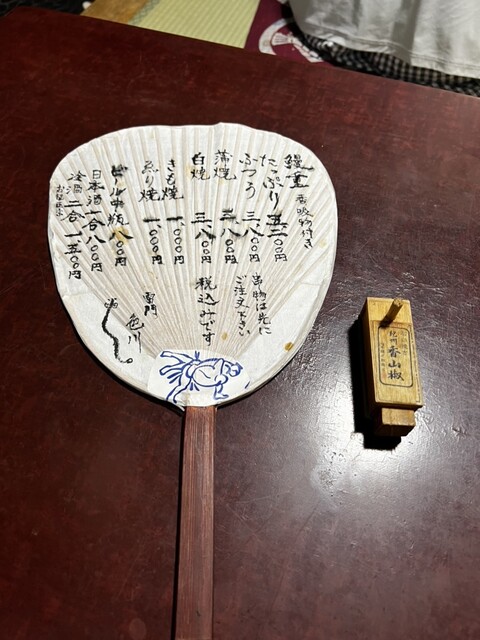 鰻重 香の物 吸物付き
たっぷり 五三〇〇円
ふつう 三八〇〇円
蒲焼 三八〇〇円
白焼 三八〇〇円
きも焼 一〇〇〇円
えり焼 一〇〇〇円
ビール中瓶 八〇〇円
日本酒 一合 八〇〇円
冷酒 二合 一五〇〇円
串物は先に
ご注文下さい
税込みです
雷門
色川
紀州
香山椒